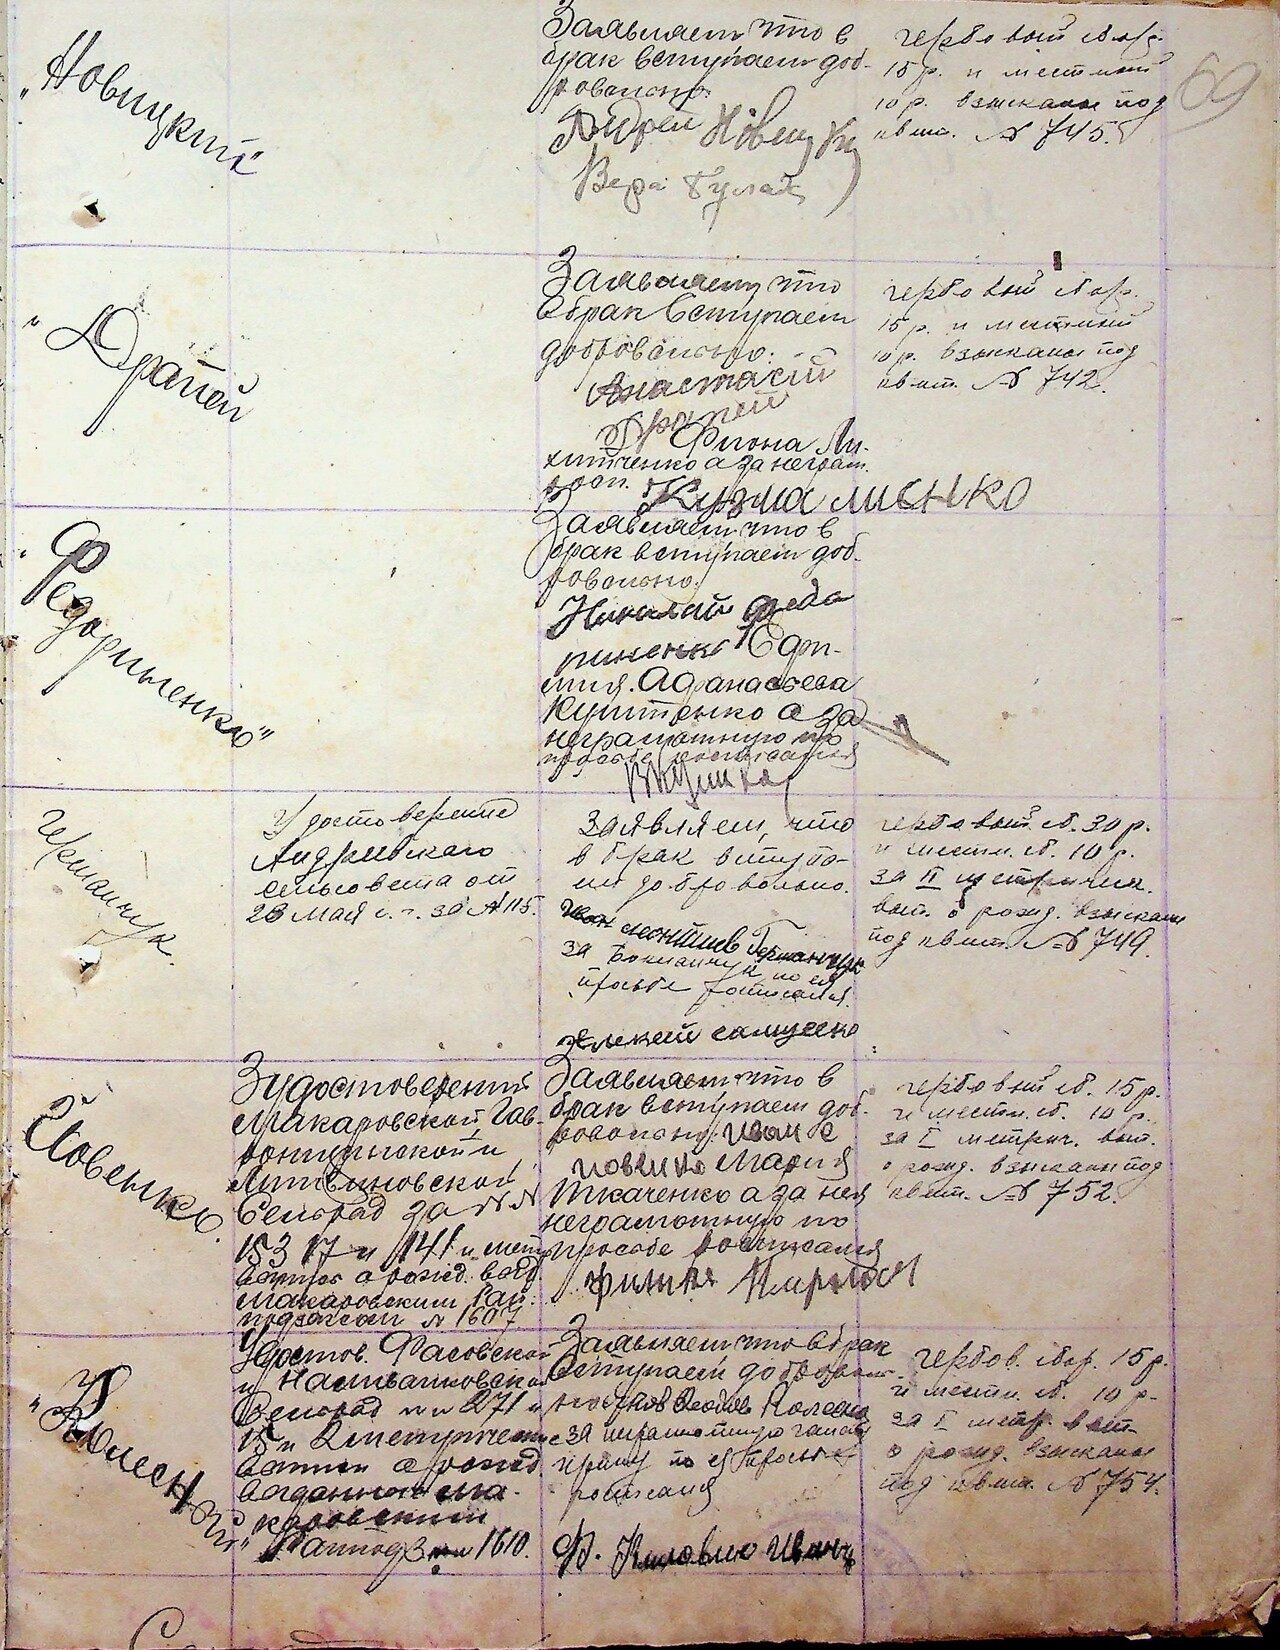 69
„Новицкий“
Заявляем что в
брак вступаем доб-
ровольно.
Андрей Новицкий
Вера Гулак
гербовый сбор.
15 р. и местный
10 р. взысканы под
квит. № 745.
„Драпей
Заявляем что
в брак вступаем
добровольно.
Анастасий
Драпей
Фиона Ли-
хитченко а за неграм.
Кузма
гербовый сбор.
15 р. и местный
10 р. взысканы под
квит. № 742.
„Федориненко“
Заявляем что в
брак вступаем доб-
ровольно.
Николай Федо
риненко Ефи-
мия. Афанасьева
а за
неграмотную по
просьбе росписался
Германчук.
Удостоверение
Андреевского
сельсовета от
23 мая с. г. за № 115.
Заявляем, что
в брак вступа-
ем добровольно.
Иван Германчук
за по её
просьбе росписался.
Алексей
гербовый сб. 30 р.
и местн. сб. 10 р.
за II метрическ.
вып. о рожд. взысканы
под квит. № 749.
Йовенко.
3 удостоверений
Макаровской, Гав-
ронщинской и
Литвиновской
Сельрад за №№
153 17 и 141 и метр
выписи о рожд. выд.
Макаровским Рай.
подзагсом № 1607
Заявляем что в
брак вступаем доб-
ровольно: Иван
Мария
Ткаченко а за нея
неграмотную по
просьбе росписался
гербовый сб. 15 р.
и местн. сб. 10 р.
за I метрич. вып.
о рожд. взысканы под
квит. № 752.
„Колесний“
Удостов. Фасовской
и Наливайковской
Сельрад №№ 271 и
15 и 2 метрические
выписи о рожд
выданные Ма-
каровским
1610.
Заявляем что в брак
вступаем добровольно
за неграмотную
по её просьбе
росписался
гербов. сбор. 15 р.
и местн. сб. 10 р.
за I метр. вып.
о рожд. взысканы
под квит. № 754.